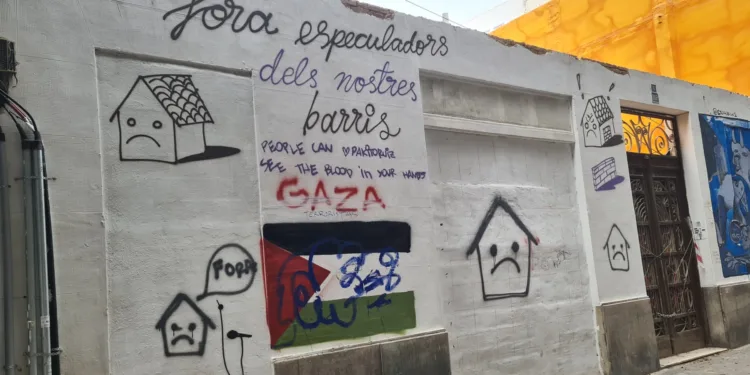 fora especuladors
dels nostres
barris
PEOPLE CAN
SEE THE BLOOD in YOUR HANDS
GAZA
FORA